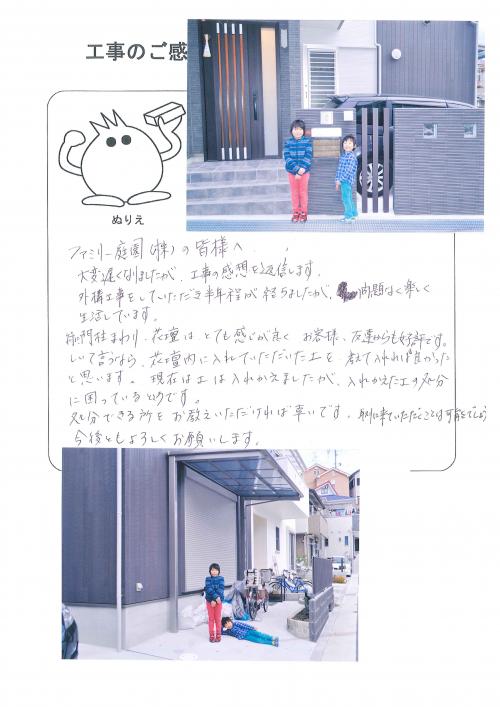 工事のご感
ぬりえ
ファミリー庭園(株)の皆様へ、
大変遅くなりましたが、工事の感想を返信します。
外構工事をしていただき半年程が経ちましたが、問題なく楽しく
生活しています。
門柱まわり、花壇はとても感じが良く お客様、友達からも好評です。
しいて言うなら、花壇内に入れていただいた土を 教えて入れれば良かった
と思います。現在は土は入れかえましたが、入れかえた土の処分
に困っているところです。
処分できる所をお教えいただければ幸いです。 取りに来ていただくことは可能でしょう
今後ともよろしくお願いします。